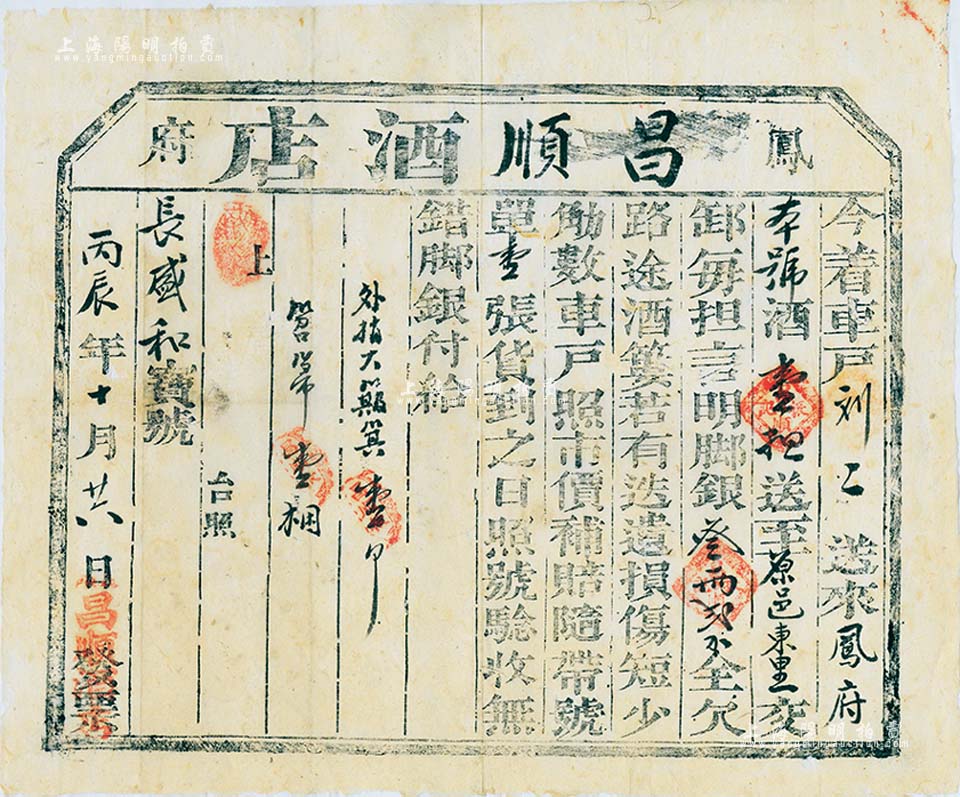 上海陽明拍賣
www.yangmingauction.com
鳳 昌順酒店 府
今着車戶刘二送來鳳府
本號酒壹担送至原邑東里交
卸每担言明脚銀叁両弍全欠
路途酒簍若有迭遺損傷短少
觔數車戶照市價補賠隨帶號
單壹張貨到之日照號騐收無
錯脚銀付給
外指大簸箕壹
笤帚壹梱
上
台照
長盛和寶號
丙辰年十月廿六日
昌順
上海陽明拍賣
www.yangmingauction.com
上海陽明拍賣
www.yangmingauction.com